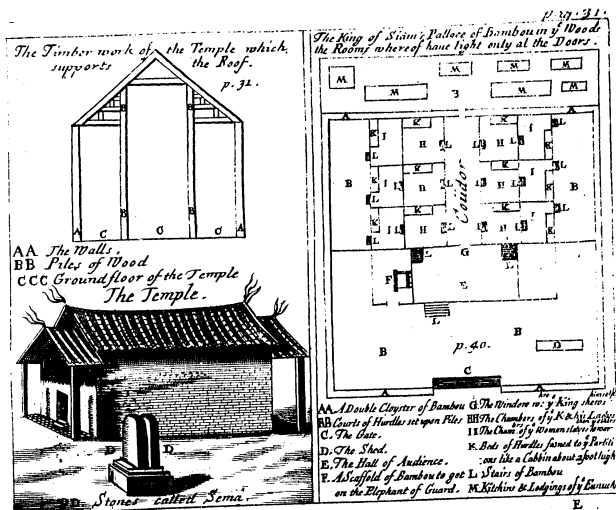 pag. 31.
The Timber work of the Temple which
supports the Roof.
p. 31.
B B
B B
A C C C A
AA The Walls,
BB Piles of Wood
CCC Ground floor of the Temple
The Temple.
D D
DD Stones called Sema.
The King of Siam's Pallace of Bambou in yͤ Woods
the Rooms whereof have light only at the Doors.
M M M M
M M M
A A
B B
Coridor
G
F E
L
B B
p. 40.
D
C
A A
AA. A Double Cloyster of Bambou
BB Courts of Hurdles set upon Piles
C. The Gate.
D. The Shed.
E. The Hall of Audience.
F. A Scaffold of Bambou to get
on the Elephant of Guard.
G. The Window w: yͤ King shews
himself
HH The Chambers of yͤ K & his Ladies
II The Cham: of yͤ Women slaves lower
K. Beds of Hurdles fasned to yͤ Partiti
ons like a Cabbin about a foot high
L. Stairs of Bambou
M. Kitchins & Lodgings of yͤ Eunuchs
E